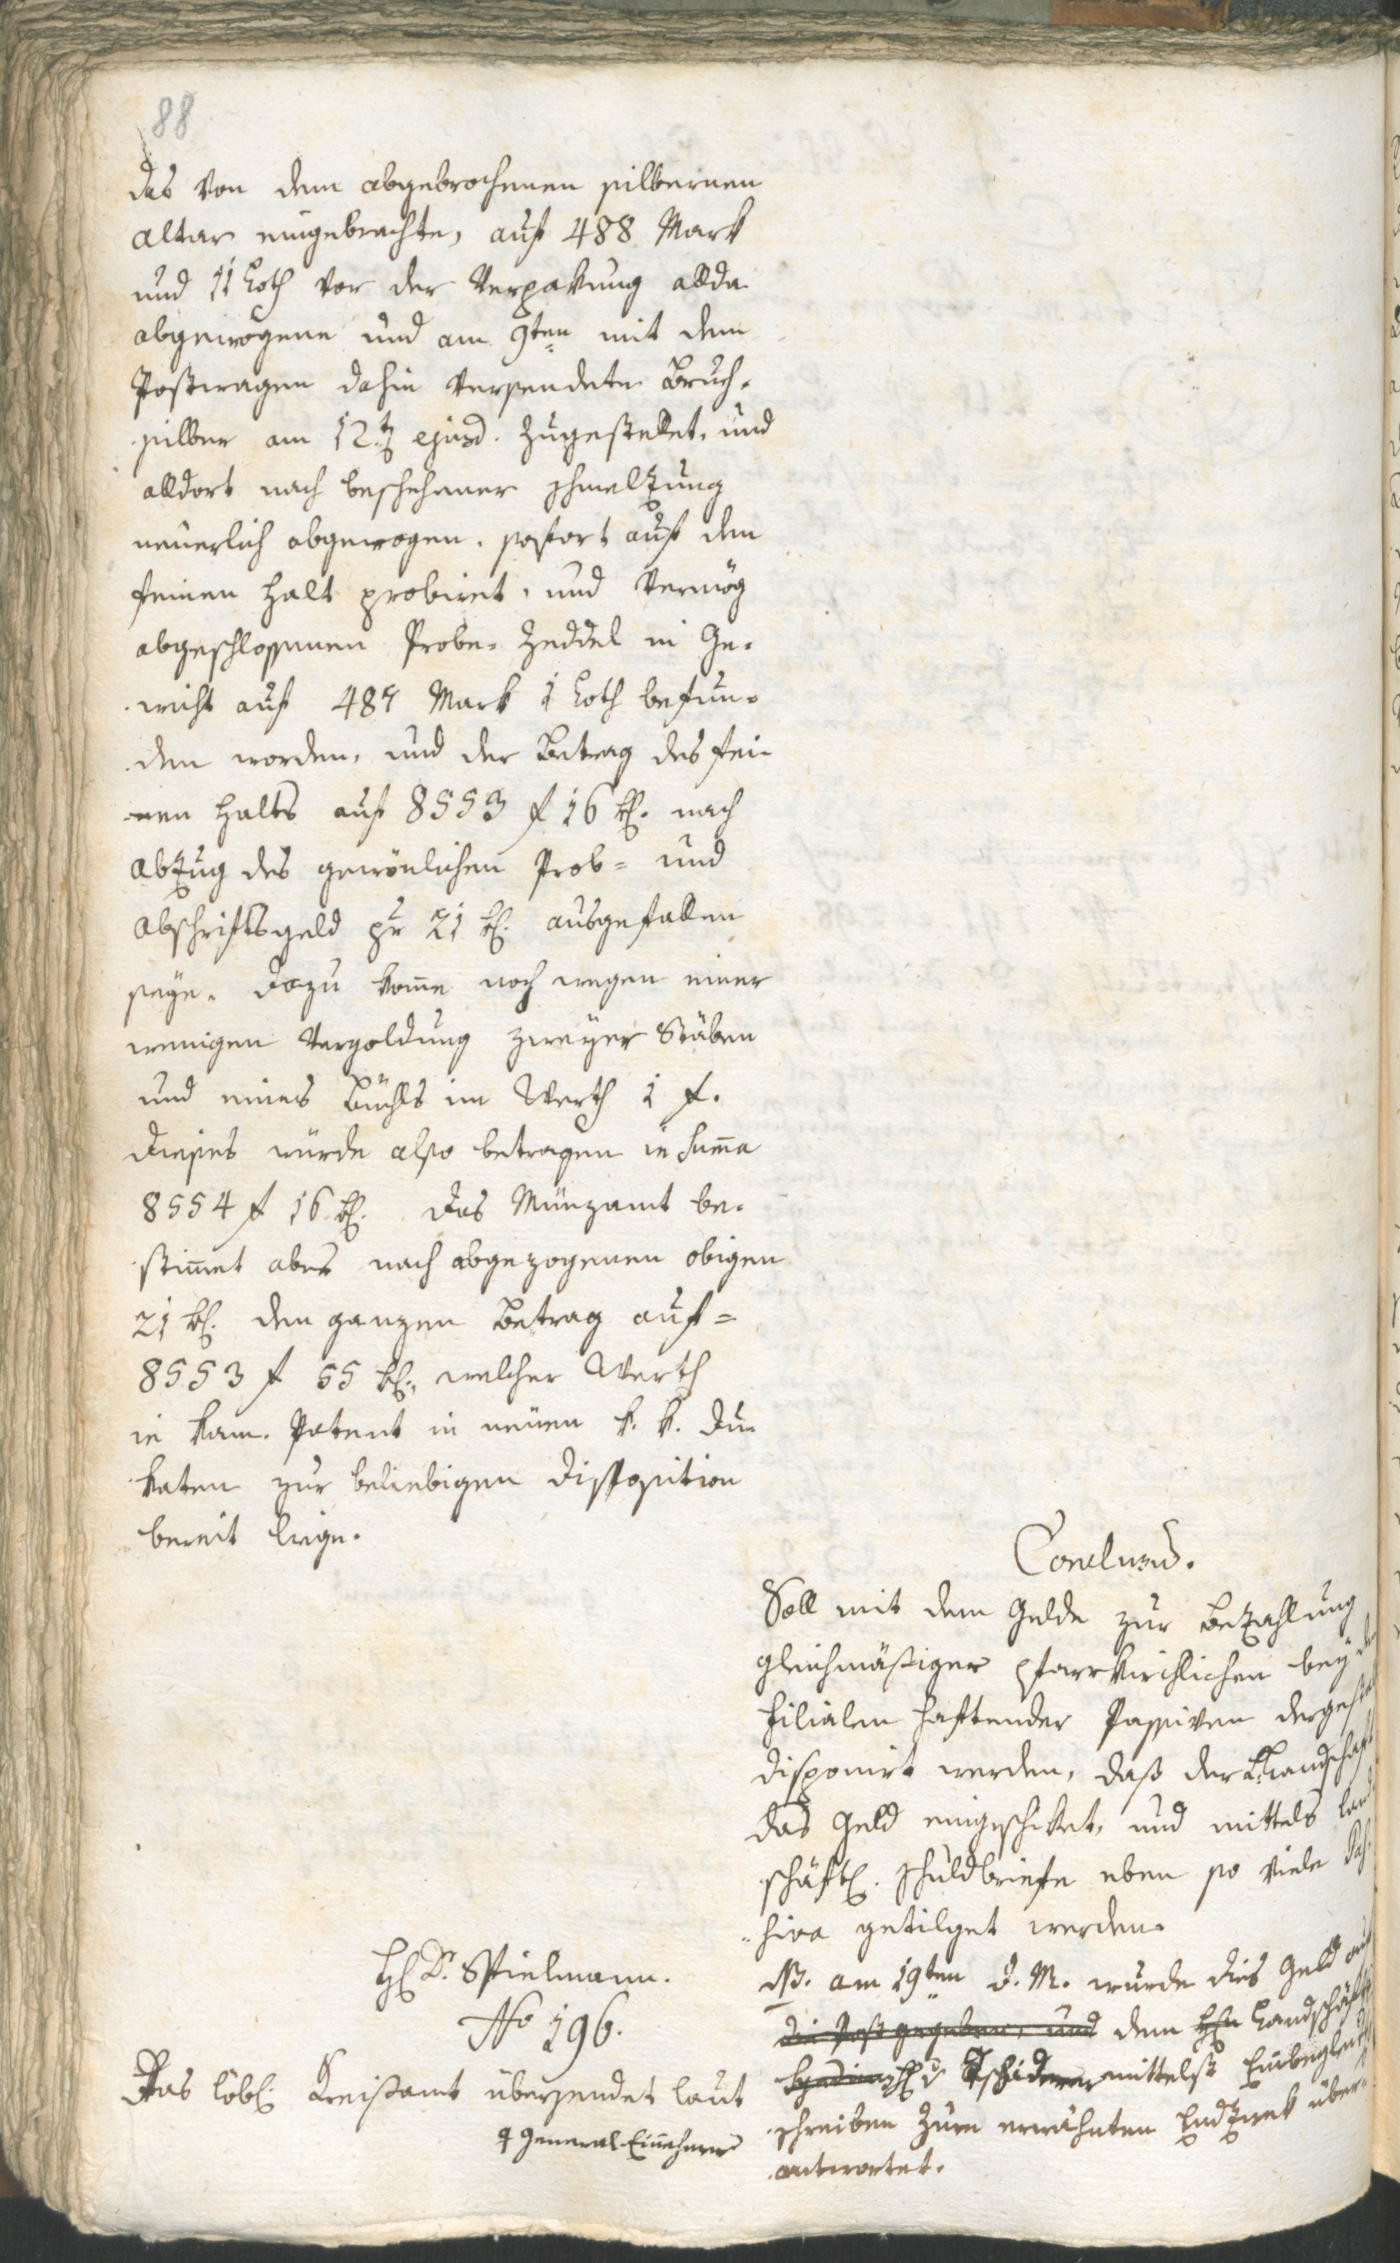 88
das von dem abgebrochenen silbernen
altar eingebrachte, auf 488 Mark
und 11 Loth vor der Verpakung allda
abgewogene und am 9ten mit dem
Postwagen dahin versendete Bruch-
silber am 12t ejusd. zugestellet, und
alldort nach beschehener schmelzung
neuerlich abgewogen, sofort auf den
feinen Halt probiret, und vermög
abgeschlossenen Probe-Zeddel in Ge-
wicht auf 487 Mark 1 Loth befun-
den worden, und der Betrag des fei-
nen Halts auf 8553 f 16 k. nach
abzug des gewönlichen Prob- und
abschriftsgeld pr 21 k. ausgefallen
seye. Dazu kome noch wegen einer
wenigen Vergoldung zweyer Stäben
und eines Büchls im Werth 1 f.
Dieses würde also betragen in suma
8554 f 16 k. Das Münzamt be-
stimet aber nach abgezogenen obigen
21 k. den ganzen Betrag auf =
8553 f 55 k., welcher Werth
in kam. Patent in neuen k. k. Du-
katen zur beliebigen disposition
bereit liege.
Conclusud.
Soll mit dem Gelde zur Bezahlung
gleichmäßiger pfarrkirchlichen bey den
Filialen haftender Passiven dergestal
disponirt werden, daß der Landschaft
das Geld eingeschiket, und mittels land
schäftl. schuldbriefe eben so viele Pas-
siva getilget werden.
NB. am 19ten d. M. wurde dies Geld auf
die Post gegeben, und dem Hn Landschäftl
v Tschiderer mittelst Einbegleit
schreiben zum erwähnten Endzwek über-
antwortet.
H Dr. Spielmann.
No 196.
Das löbl. Kreisamt übersendet laut
General-Einnehmer